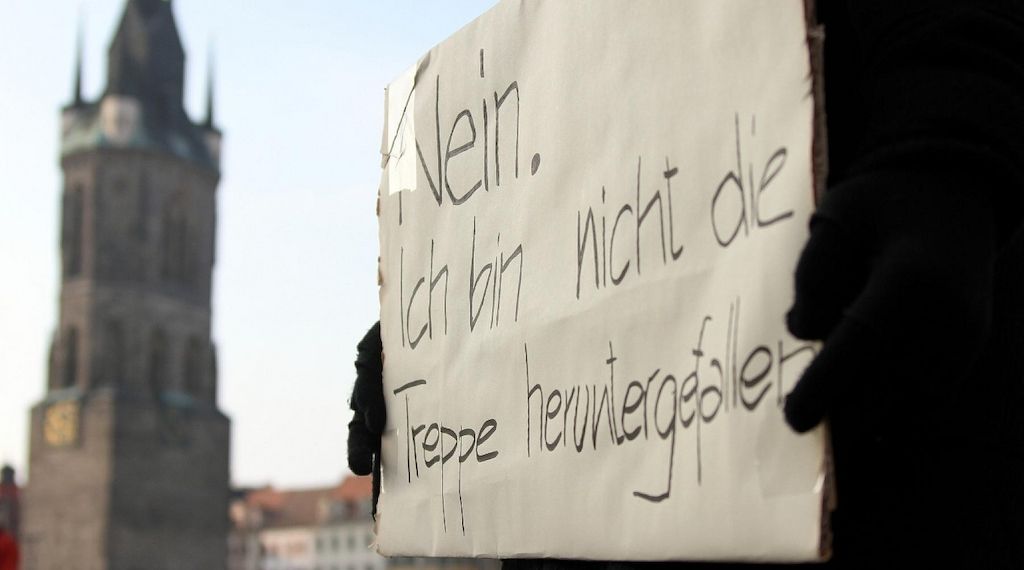 Nein.
ich bin nicht die
Treppe heruntergefallen